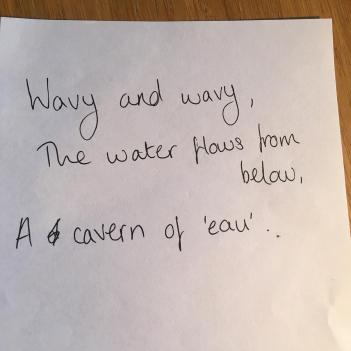 Wavy and wavy,
The water flows from
below,
A cavern of 'eau'..